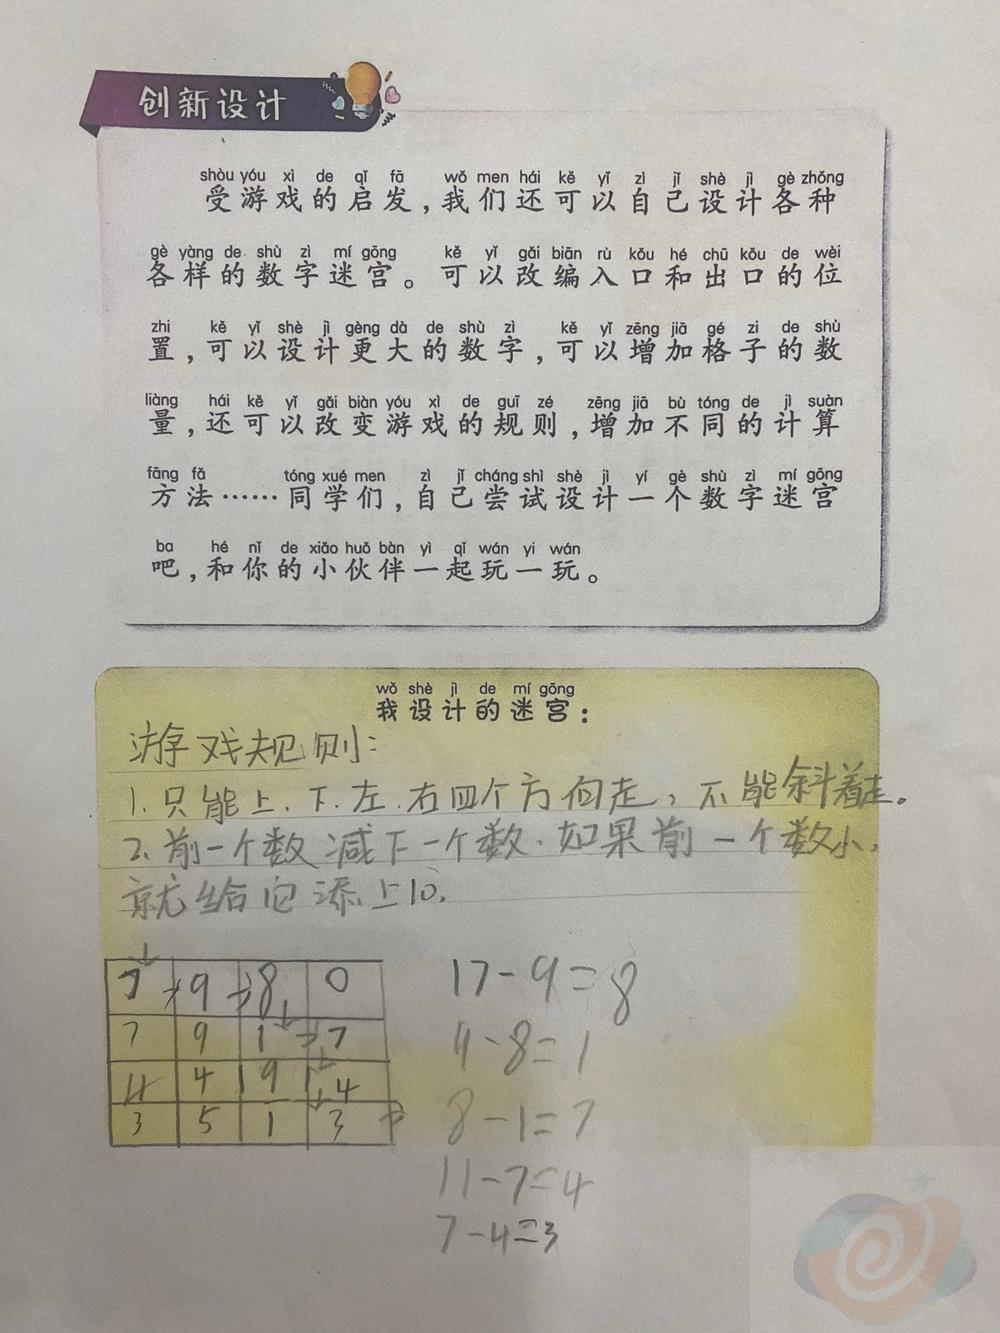 创新设计
shòu yóu xì de qǐ fā wǒ men hái kě yǐ zì jǐ shè jì gè zhǒng
受游戏的启发，我们还可以自己设计各种
gè yàng de shù zì mí gōng kě yǐ gǎi biān rù kǒu hé chū kǒu de wèi
各样的数字迷宫。可以改编入口和出口的位
zhi kě yǐ shè jì gèng dà de shù zì kě yǐ zēng jiā gé zi de shù
置，可以设计更大的数字，可以增加格子的数
liàng hái kě yǐ gǎi biàn yóu xì de guī zé zēng jiā bù tóng de jì suàn
量，还可以改变游戏的规则，增加不同的计算
fāng fǎ tóng xué men zì jǐ cháng shì shè jì yí gè shù zì mí gōng
方法……同学们，自己尝试设计一个数字迷宫
ba hé nǐ de xiǎo huǒ bàn yì qǐ wán yi wán
吧，和你的小伙伴一起玩一玩。
wǒ shè jì de mí gōng
我设计的迷宫：
游戏规则：
1.只能上.下.左.右四个方向走，不能斜着走。
2.前一个数减下一个数.如果前一个数小，
就给它添上10.
7 9 8 0
7 9 1 7
4 4 9 4
3 5 1 3
17-9=8
9-8=1
8-1=7
11-7=4
7-4=3